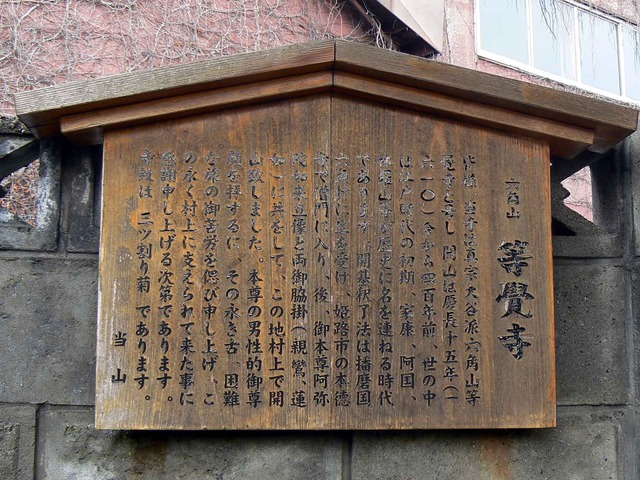 六角山 等覺寺
皆様 当寺は真宗大谷派六角山等
覺寺と号し 開山は慶長十五年(一
六一〇)今から四百年前、世の中
は江戸時代の初期、家康、阿国、
が歴史に名を連ねる時代
であります。開基釈了法は播磨国
六角村に生を受け、姫路市の本徳
寺で僧門に入り、後、御本尊阿弥
陀如来立像と両御脇掛(親鸞、蓮
如)に共をして、この地村上で開
山致しました。本尊の男性的御尊
顔を拝するに、その永き古、困難
な旅の御苦労を偲び申し上げ、こ
の永く村上に支えられて来た事に
感謝申し上げる次第であります。
寺紋は、三ツ割り菊 であります。
当山